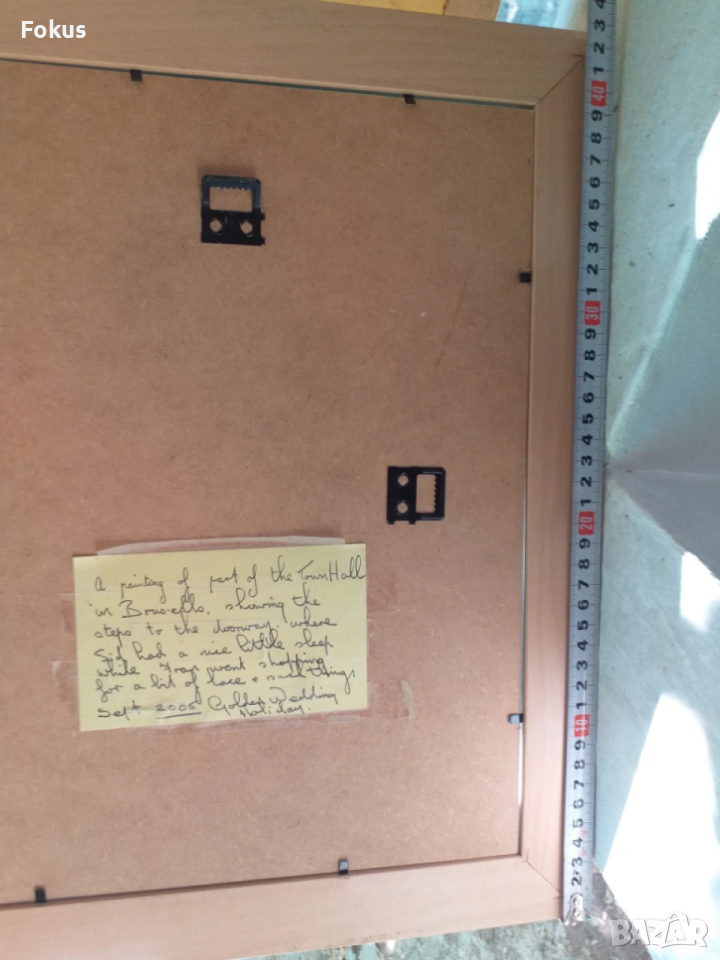 Fokus
A painting of part of the Town Hall
in Brussels, showing the
steps to the doorway where
Sid had a nice little sleep
while Fran went shopping
for a bit of lace & such things
Sept 2005 Golden Wedding
Holiday.
4
3
2
1
40
9
8
7
6
5
4
3
2
1
30
9
8
7
6
5
4
3
2
1
20
9
8
7
6
5
4
3
2
1
10
9
8
7
6
5
4
3
2
BAZAR